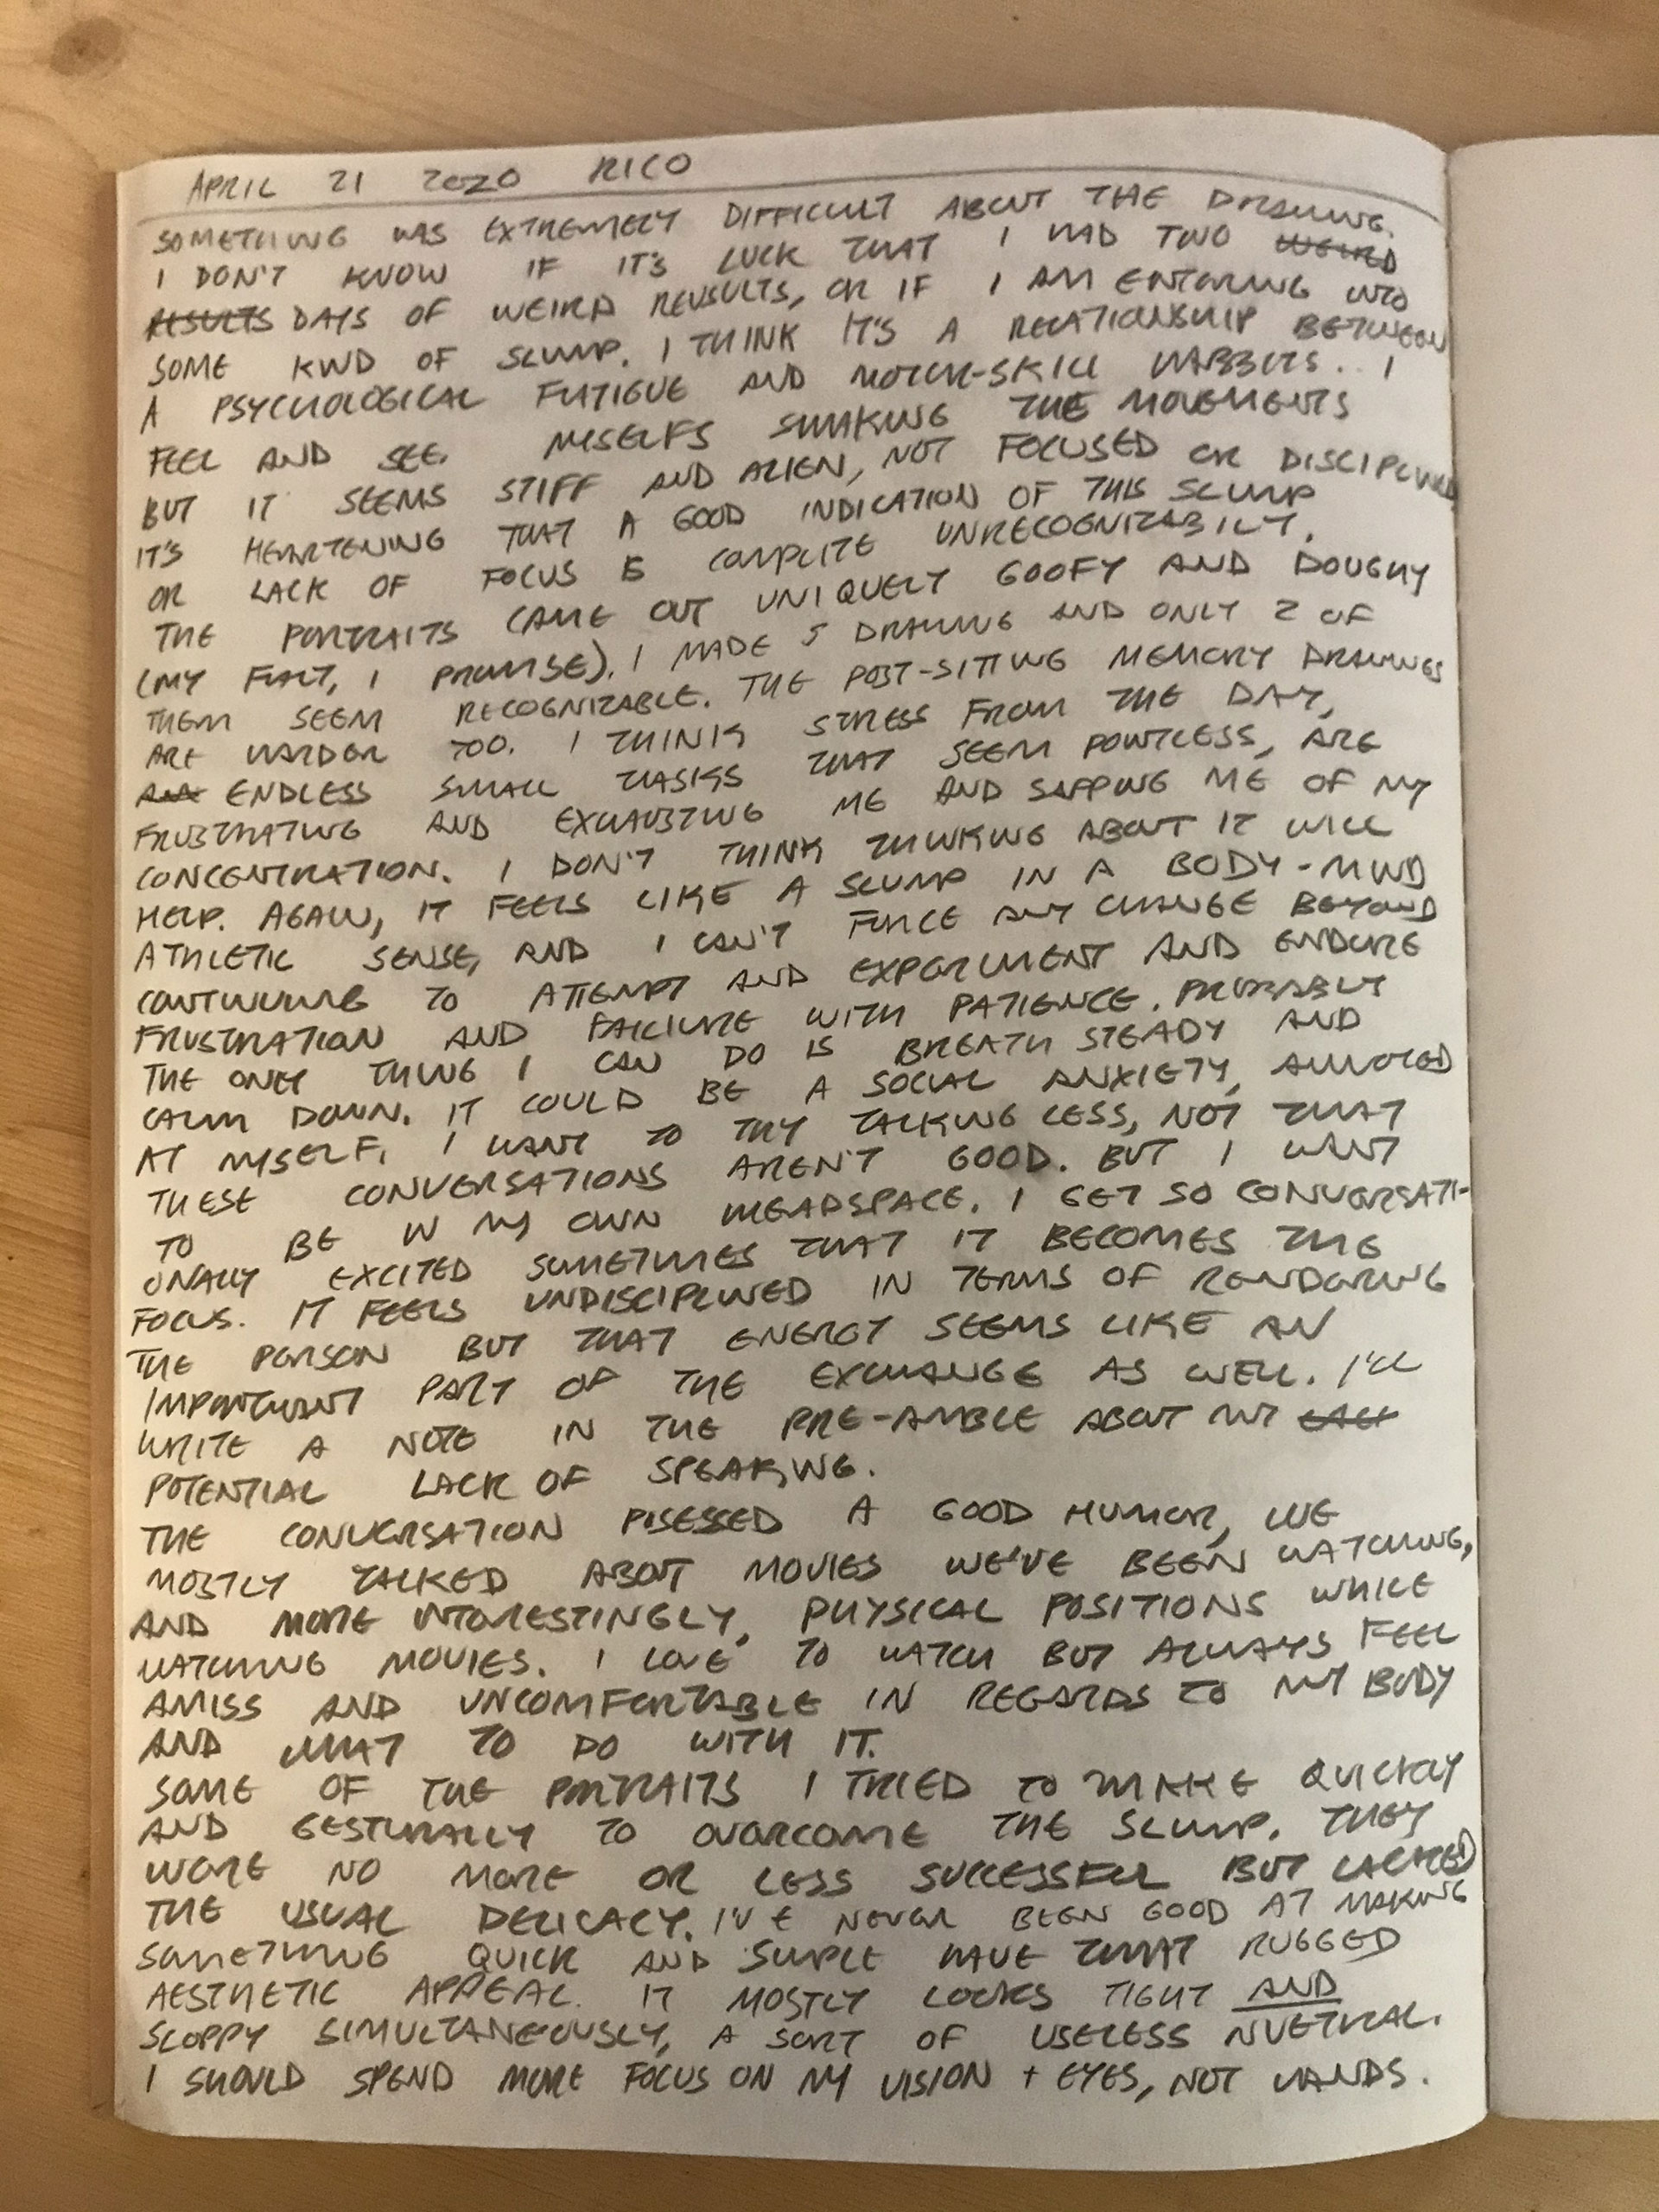 APRIL 21 2020 RICO
SOMETHING WAS EXTREMELY DIFFICULT ABOUT THE DRAWING.
I DON'T KNOW IF IT'S LUCK THAT I HAD TWO WEIRD
RESULTS DAYS OF WEIRD REUSULTS, OR IF I AM ENTERING INTO
SOME KIND OF SLUMP. I THINK IT'S A RELATIONSHIP BETWEEN
A PSYCHOLOGICAL FATIGUE AND MOTOR-SKILL HABBITS.. I
FEEL AND SEE. MYSELFS SHAKING THE MOVEMENTS
BUT IT SEEMS STIFF AND ALIEN, NOT FOCUSED OR DISCIPLINED
IT'S HEARTENING THAT A GOOD INDICATION OF THIS SLUMP
OR LACK OF FOCUS IS COMPLITE UNRECOGNIZABILTY.
THE PORTRAITS CAME OUT UNIQUELY GOOFY AND DOUGHY
(MY FUALT, I PROMISE). I MADE 5 DRAWING AND ONLY 2 OF
THEM SEEM RECOGNIZABLE. THE POST-SITTING MEMORY DRAWINGS
ARE HARDER TOO. I THINK STRESS FROM THE DAY,
ENDLESS SMALL TASKS THAT SEEM POINTLESS, ARE
FRUSTRATING AND EXHAUSTING ME AND SAPPING ME OF MY
CONCENTRATION. I DON'T THINK THINKING ABOUT IT WILL
HELP. AGAIN, IT FEELS LIKE A SLUMP IN A BODY-MIND
ATHLETIC SENSE, AND I CAN'T FORCE ANY CHANGE BEYOND
CONTINUING TO ATTEMPT AND EXPERIMENT AND ENDURE
FRUSTRATION AND FAILURE WITH PATIENCE. PROBABLY
THE ONLY THING I CAN DO IS BREATH STEADY AND
CALM DOWN. IT COULD BE A SOCIAL ANXIETY, ANNOYED
AT MYSELF. I WANT TO TRY TALKING LESS, NOT THAT
THESE CONVERSATIONS AREN'T GOOD. BUT I WANT
TO BE IN MY OWN HEADSPACE. I GET SO CONVERSATI-
ONALLY EXCITED SOMETIMES THAT IT BECOMES THE
FOCUS. IT FEELS UNDISCIPLINED IN TERMS OF RENDERING
THE PERSON BUT THAT ENERGY SEEMS LIKE AN
IMPORTANT PART OF THE EXCHANGE AS WELL. I'LL
WRITE A NOTE IN THE PRE-AMBLE ABOUT MY
POTENTIAL LACK OF SPEAKING.
THE CONVERSATION POSESSED A GOOD HUMOR, WE
MOSTLY TALKED ABOUT MOVIES WE'VE BEEN WATCHING,
AND MORE INTERESTINGLY, PHYSICAL POSITIONS WHILE
WATCHING MOVIES. I LOVE TO WATCH BUT ALWAYS FEEL
AMISS AND UNCOMFORTABLE IN REGARDS TO MY BODY
AND WHAT TO DO WITH IT.
SOME OF THE PORTRAITS I TRIED TO MAKE QUICKLY
AND GESTURALLY TO OVERCOME THE SLUMP. THEY
WERE NO MORE OR LESS SUCCESSFUL BUT LACKED
THE USUAL DELICACY. I'VE NEVER BEEN GOOD AT MAKING
SOMETHING QUICK AND SIMPLE HAVE THAT RUGGED
AESTHETIC APPEAL. IT MOSTLY LOOKS TIGHT AND
SLOPPY SIMULTANEOUSLY, A SORT OF USELESS NUETRAL.
I SHOULD SPEND MORE FOCUS ON MY VISION + EYES, NOT HANDS.